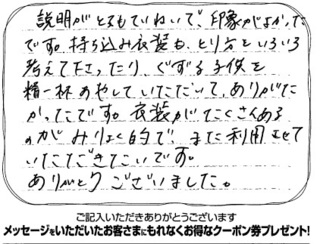 説明がとてもていねいで、印象がよかった
です。持ち込み衣装も、とり方をいろいろ
考えて下さったり、ぐずる子供を
精一杯あやしていただいて、ありがた
かったです。衣装がたくさんある
のがみりょく的で、また利用させて
いただきたいです。
ありがとうございました。
ご記入いただきありがとうございます
メッセージをいただいたお客さまにもれなくお得なクーポン券プレゼント!